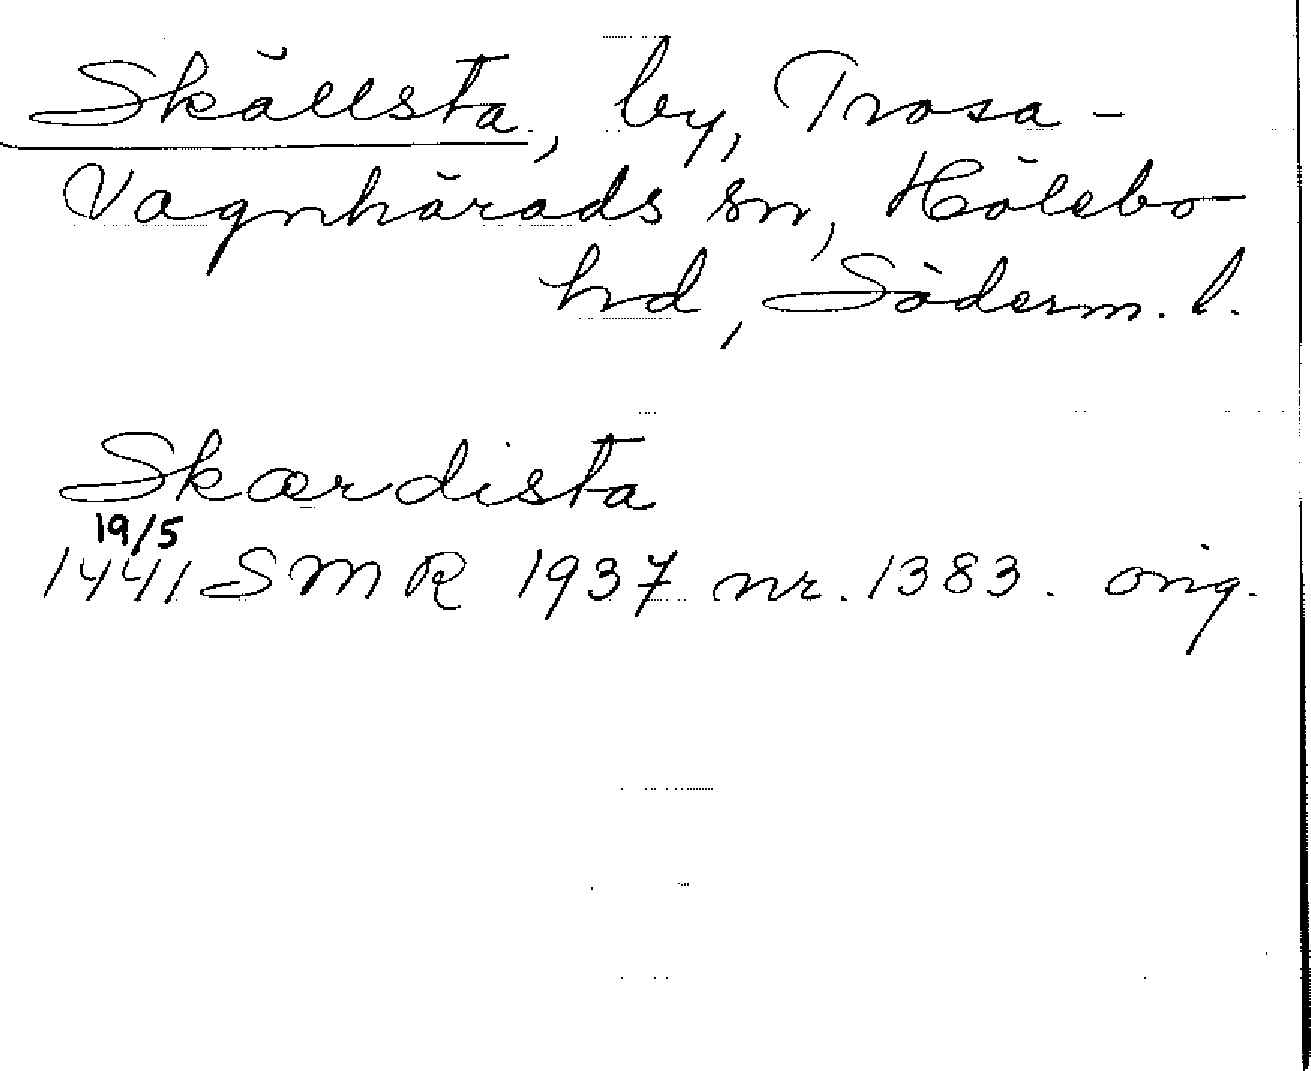 Skällsta, by, Trosa-
Vagnhärads sn, Hölebo
hd, Söderm. l.
Skærdista
19/5
1441 SMR 1937 nr. 1383. orig.